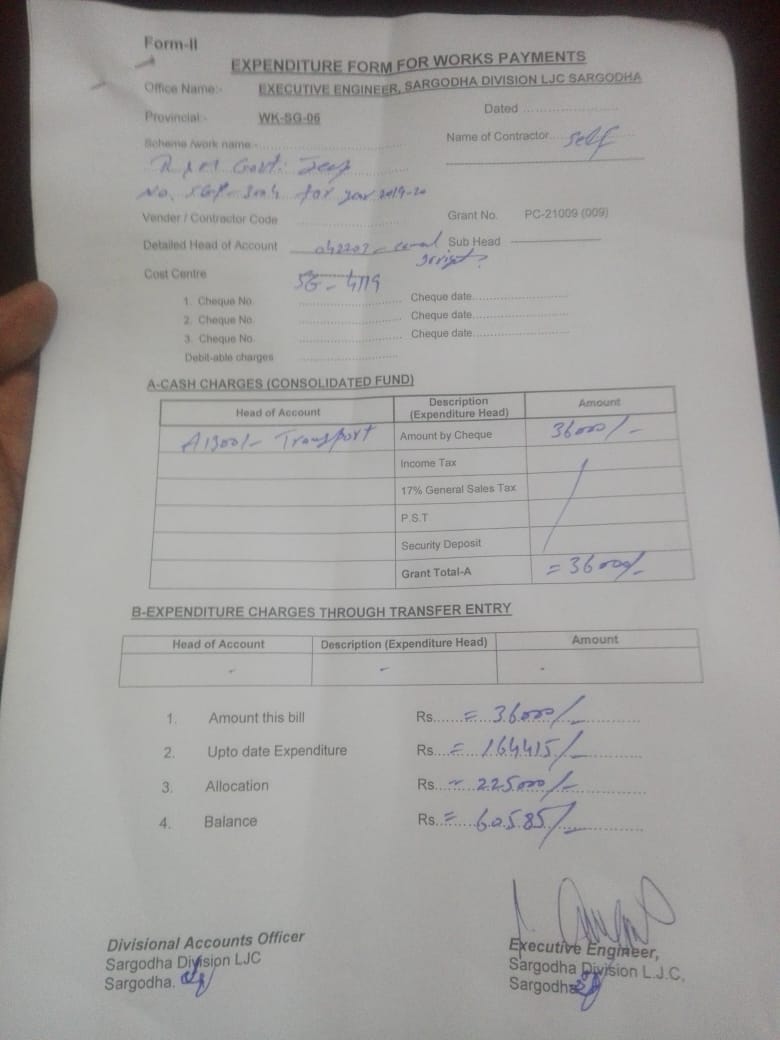 Form-II
EXPENDITURE FORM FOR WORKS PAYMENTS
Office Name:- EXECUTIVE ENGINEER, SARGODHA DIVISION LJC SARGODHA
Provincial:- WK-SG-06 Dated
Scheme /work name:- Name of Contractor self
Govt: Jeep
No. for year 2019-20
Vender / Contractor Code Grant No. PC-21009 (009)
Detailed Head of Account 042203 - canal Sub Head
Cost Centre SG - 4119
1. Cheque No. Cheque date
2. Cheque No. Cheque date
3. Cheque No. Cheque date
Debit-able charges
A-CASH CHARGES (CONSOLIDATED FUND)
Head of Account Description (Expenditure Head) Amount
A13001- Transport Amount by Cheque 36000/-
Income Tax
17% General Sales Tax
P.S.T
Security Deposit
Grant Total-A = 36000/-
B-EXPENDITURE CHARGES THROUGH TRANSFER ENTRY
Head of Account Description (Expenditure Head) Amount
- - -
1. Amount this bill Rs. = 36000/-
2. Upto date Expenditure Rs. = 164415/-
3. Allocation Rs. = 225000/-
4. Balance Rs. = 60585/-
Divisional Accounts Officer
Sargodha Division LJC
Sargodha.
Executive Engineer,
Sargodha Division L.J.C,
Sargodha